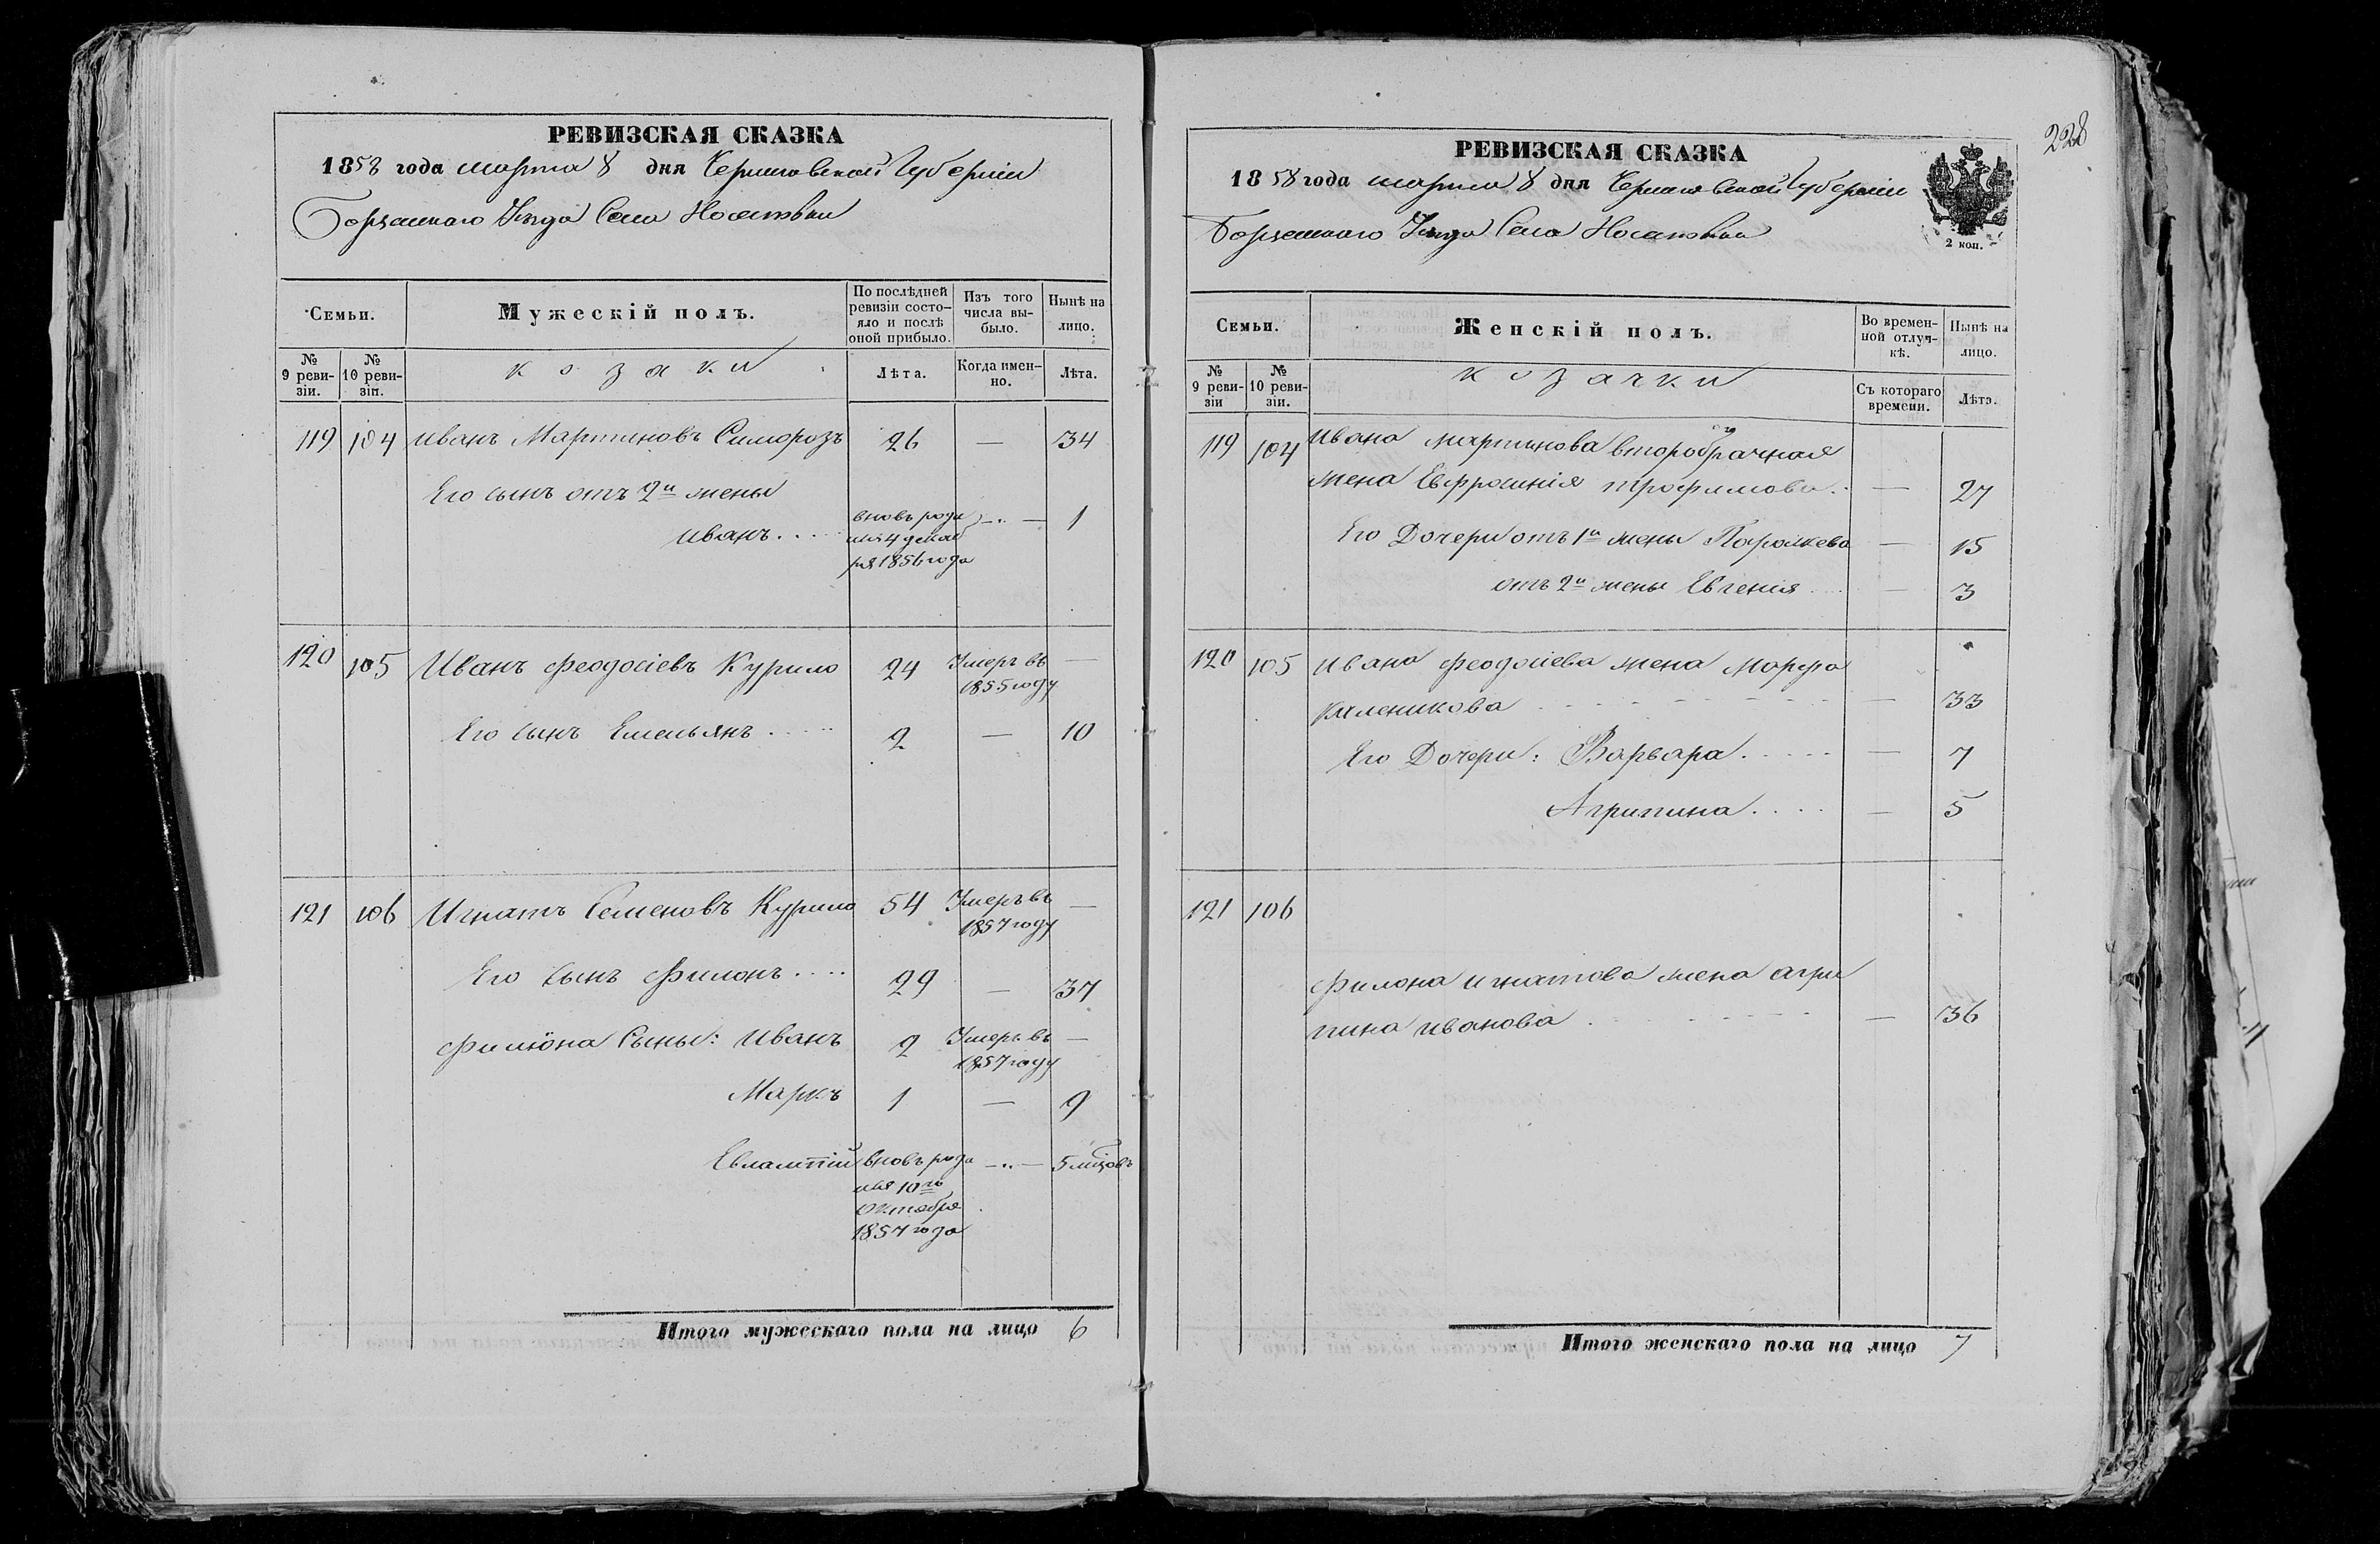 РЕВИЗСКАЯ СКАЗКА
1858 года марта 8 дня Черниговской Губерніи
Борзенского Уезда Села Носиловки
Семьи.
Мужескій полъ.
По послѣдней ревизіи состо-
яло и послѣ
оной прибыло.
Изъ того
числа вы-
было.
Нынѣ на
лицо.
№
9 реви-
зіи.
№
10 реви-
зіи.
козаки
Лѣта.
Когда имен-
но.
Лѣта.
119 104 Иванъ Мартиновъ Симорозъ 26 — 34
Его сынъ отъ 2й жены
Иванъ.... вновь роди — " — 1
лся 4 декаб
ря 1856 года
120 105 Иванъ Феодосіевъ Курило 24 Умеръ въ —
1855 году
Его сынъ Емельянъ..... 2 — 10
121 106 Игнатъ Семеновъ Курило 54 Умеръ въ —
1857 году
Его сынъ Филонъ.... 29 — 37
Филона Сыны: Иванъ 2 Умеръ въ —
1857 году
Маркъ 1 — 9
Евлампій вновь роди — " — 5 мѣцовъ
лся 10го
Октября
1857 года
Итого мужескаго пола на лицо 6
228
РЕВИЗСКАЯ СКАЗКА
1858 года марта 8 дня Черниговской Губерніи
Борзенского Уезда Села Носиловки
2 коп.
Семьи.
Женскій полъ.
Во времен-
ной отлуч-
кѣ.
Нынѣ на
лицо.
№
9 реви-
зіи
№
10 реви-
зіи.
козачки
Съ котораго
времени.
Лѣта.
119 104 Ивана Мартынова второбрачная
жена Евфросинія Трофимова.. — 27
Его Дочери отъ 1й жены Параскева — 15
отъ 2й жены Евгенія.... — 3
120 105 Ивана Феодосіева жена Марфа
Каленикова — 33
Его Дочери: Варвара..... — 7
Агрипина.... — 5
121 106
Филона Игнатова жена Агри
пина Иванова — 36
Итого женскаго пола на лицо 7